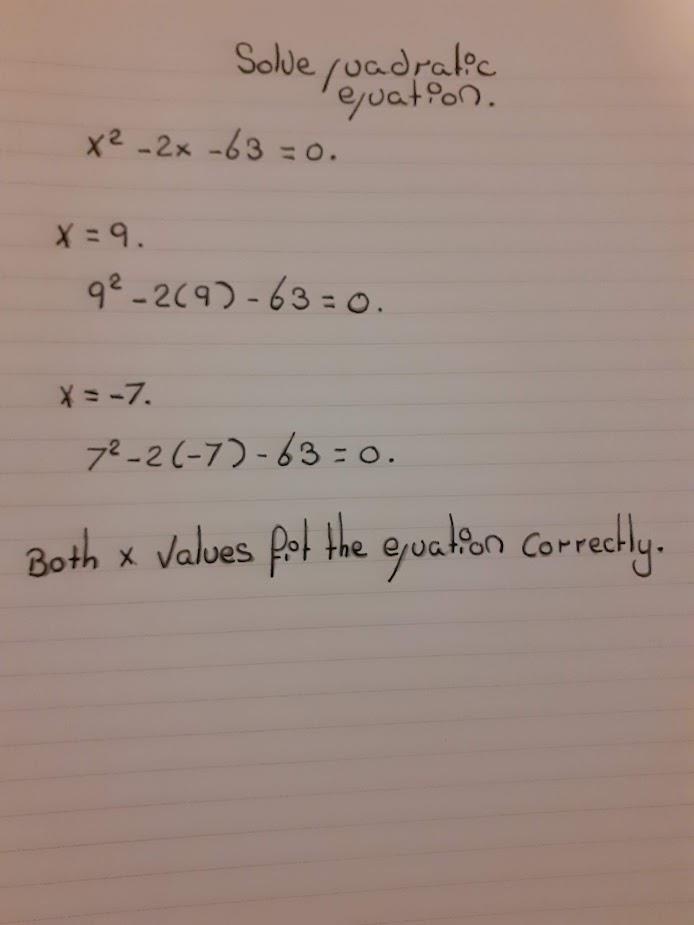 Solve quadratic
equation.
x² - 2x - 63 = 0.
x = 9.
9² - 2(9) - 63 = 0.
x = -7.
7² - 2(-7) - 63 = 0.
Both x values fit the equation correctly.